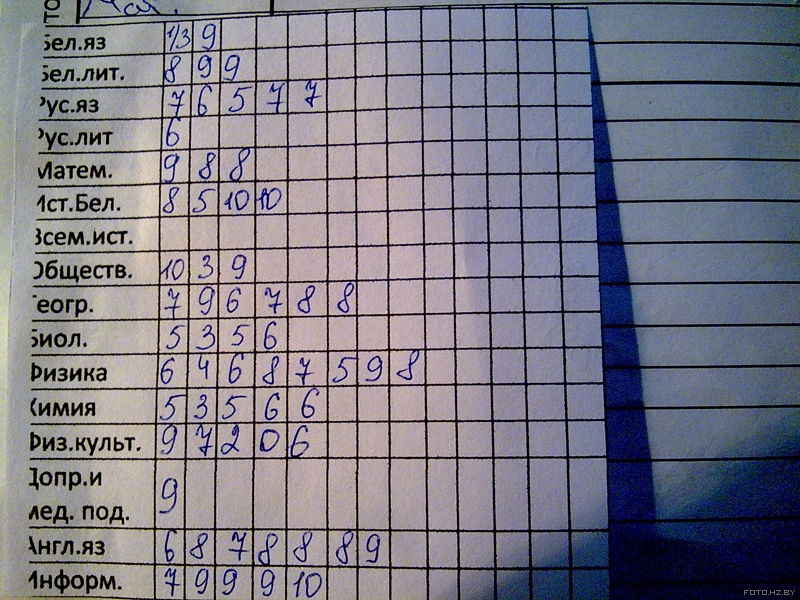 Бел.яз 1/3 9
Бел.лит. 8 9 9
Рус.яз 7 6 5 7 7
Рус.лит 6
Матем. 9 8 8
Ист.Бел. 8 5 10 10
Всем.ист.
Обществ. 10 3 9
Геогр. 7 9 6 7 8 8
Биол. 5 3 5 6
Физика 6 4 6 8 7 5 9 8
Химия 5 3 5 6 6
Физ.культ. 9 7 2 0 6
Допр.и
мед. под. 9
Англ.яз 6 8 7 8 8 8 9
Информ. 7 9 9 9 10
FOTO.HZ.BY